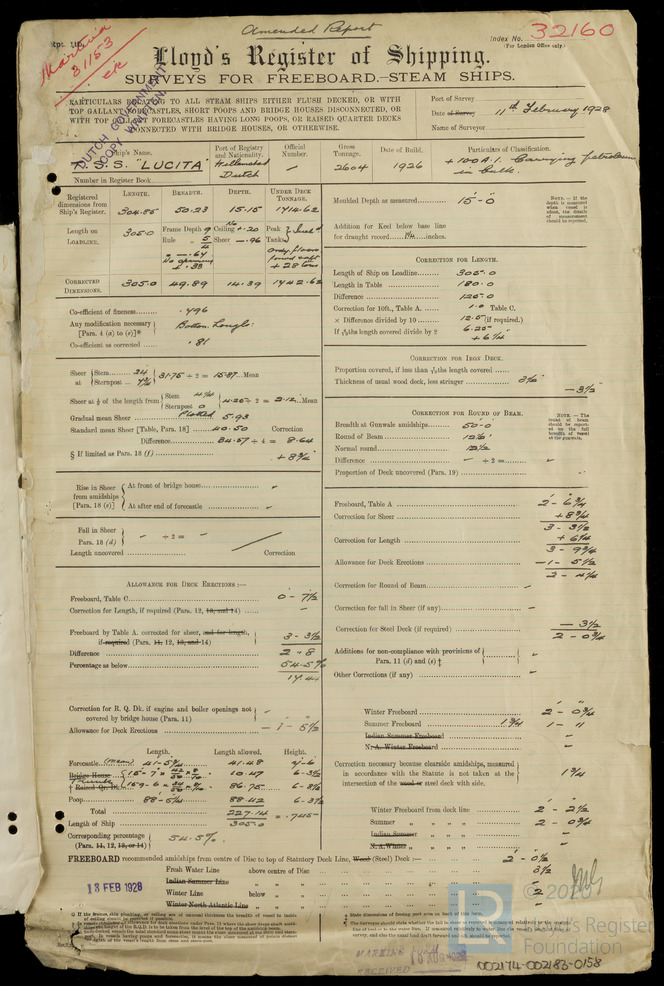 Amended Report
Rpt. 11c.
Index No. 32160
(For London Office only.)
Martina
31153
etc
Lloyd's Register of Shipping.
SURVEYS FOR FREEBOARD.—STEAM SHIPS.
PARTICULARS RELATING TO ALL STEAM SHIPS EITHER FLUSH DECKED, OR WITH
TOP GALLANT FORECASTLES, SHORT POOPS AND BRIDGE HOUSES DISCONNECTED, OR
WITH TOP GALLANT FORECASTLES HAVING LONG POOPS, OR RAISED QUARTER DECKS
CONNECTED WITH BRIDGE HOUSES, OR OTHERWISE.
DUTCH GOVERNMENT
COPY WRITTEN
Port of Survey
Date of Survey 11th February 1928
Name of Surveyor
Ship's Name. Port of Registry and Nationality. Official Number. Gross Tonnage. Date of Build. Particulars of Classification.
S.S. "LUCITA" Willemstad Dutch 2604 1926 +100A.1. Carrying petroleum in bulk.
Number in Register Book
Registered dimensions from Ship's Register. LENGTH. BREADTH. DEPTH. UNDER DECK TONNAGE.
304.85 50.23 15.15 1714.62
Length on LOADLINE. 305.0 Frame Depth 9 Ceiling +.20 Peak Tanks
Rule Sheer -.96
CORRECTED DIMENSIONS. 305.0 49.89 14.39 1742.62
Co-efficient of fineness .796
Any modification necessary [Para. 4 (a) to (e)]* Botton. Longls:
Co-efficient as corrected .81
Sheer at Stem 24 Sternpost 7¾ 31.75 ÷ 2 = 15.87 Mean
Sheer at ⅛ of the length from Stem 4¼ Sternpost 0 4.25 ÷ 2 = 2.12 Mean
Gradual mean Sheer Plotted 5.93
Standard mean Sheer [Table, Para. 18] 40.50 Correction
Difference 34.57 ÷ 4 = 8.64
§ If limited as Para. 18 (f) + 8¾
Rise in Sheer from amidships [Para. 18 (e)] At front of bridge house
At after end of forecastle
Fall in Sheer Para. 18 (d) ÷ 2 =
Length uncovered Correction
ALLOWANCE FOR DECK ERECTIONS :—
Freeboard, Table C 0 - 7½
Correction for Length, if required (Para. 12, 13, and 14)
Freeboard by Table A. corrected for sheer, and for length, if required (Para. 11, 12, 13, and 14) 3 - 3½
Difference 2 - 8
Percentage as below 54.5%
17.44
Correction for R. Q. Dk. if engine and boiler openings not covered by bridge house (Para. 11)
Allowance for Deck Erections - 1 - 5½
Length. Length allowed. Height.
Forecastle (mean) 41-5¾ 41.48
Bridge House 15-7 10.47 6-3½
Trunk † Raised Qr. Dk. 159-6 86.75
Poop 88-5¼ 88.42 6-3½
Total 227.14
Length of Ship 305.0 = .745
Corresponding percentage (Para. 11, 12, 13, or 14) 54.5%
Moulded Depth as measured 15 - 0
NOTE.—If the depth is measured when vessel is afloat, the details of measurement should be reported.
Addition for Keel below base line for draught record inches.
CORRECTION FOR LENGTH.
Length of Ship on Loadline 305.0
Length in Table 180.0
Difference 125.0
Correction for 10ft., Table A. 1.0 Table C.
× Difference divided by 10 12.5 (if required.)
If 6/10ths length covered divide by 2 6.25
+ 6¼
CORRECTION FOR IRON DECK.
Proportion covered, if less than 7/10ths length covered
Thickness of usual wood deck, less stringer 3½
— 3½
CORRECTION FOR ROUND OF BEAM.
NOTE.—The round of beam should be reported on the full breadth of vessel at the gunwale.
Breadth at Gunwale amidships 50 - 0
Round of Beam 12½
Normal round 12½
Difference ÷ 2 =
Proportion of Deck uncovered (Para. 19)
Freeboard, Table A 2 - 6¾
Correction for Sheer + 8¾
3 - 3½
Correction for Length + 6¼
3 - 9¾
Allowance for Deck Erections — 1 - 5½
2 - 4¼
Correction for Round of Beam
Correction for fall in Sheer (if any)
Correction for Steel Deck (if required) — 3½
2 - 0¾
Additions for non-compliance with provisions of Para. 11 (d) and (e) †
Other Corrections (if any)
Winter Freeboard 2 - 0¾
Summer Freeboard 1¾ 1 - 11
Indian Summer Freeboard
N. A. Winter Freeboard
Correction necessary because clearside amidships, measured in accordance with the Statute is not taken at the intersection of the wood or steel deck with side. 1¾
Winter Freeboard from deck line 2 - 2½
Summer „ „ „ 2 - 0¾
Indian Summer „ „ „
N. A. Winter „ „ „
FREEBOARD recommended amidships from centre of Disc to top of Statutory Deck Line, Wood (Steel) Deck :— 2 - 0½
Fresh Water Line above centre of Disc 3½
Indian Summer Line „ „
Winter Line below „ „ 2
Winter North Atlantic Line „ „
13 FEB 1928
MARKING FORM
RECEIVED
© 2020
Lloyd's Register
Foundation
LR
002174-002183-0158